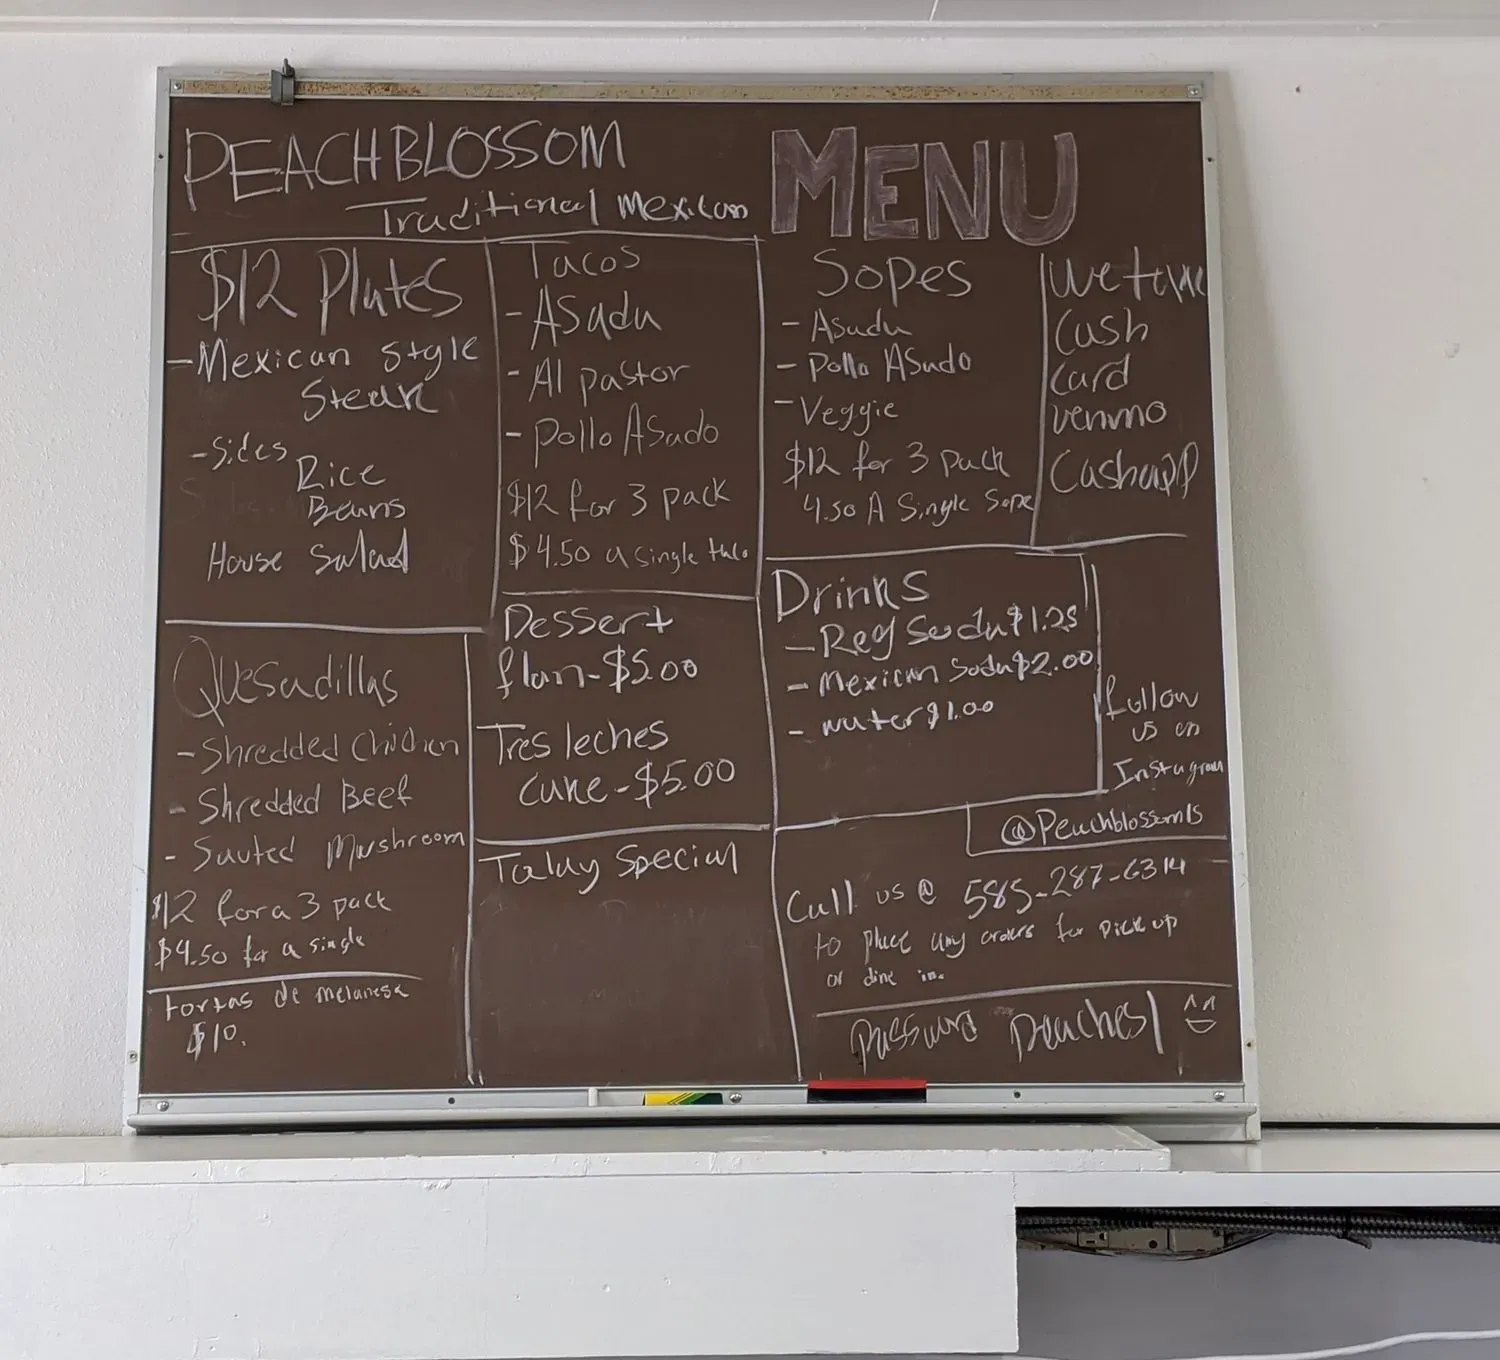 PEACHBLOSSOM
Traditional Mexican
MENU
$12 Plates
-Mexican Style
Steak
-Sides
Rice
Beans
House Salad
Tacos
- Asada
- Al pastor
- Pollo Asado
$12 for 3 pack
$4.50 a single taco
Sopes
- Asada
- Pollo Asado
- Veggie
$12 for 3 pack
4.50 A Single Sope
We take
Cash
Card
Venmo
Cashapp
Quesadillas
- Shredded Chicken
- Shredded Beef
- Sauted Mushroom
$12 for a 3 pack
$4.50 for a single
tortas de melanesa
$10.
Dessert
flan - $5.00
Tres leches
cake - $5.00
Today Special
Drinks
- Reg Soda $1.25
- Mexican Soda $2.00
- water $1.00
follow
us on
Instagram
@Peachblossom15
Call us @ 585-287-6314
to place any orders for pick up
or dine in.
Password Peaches1